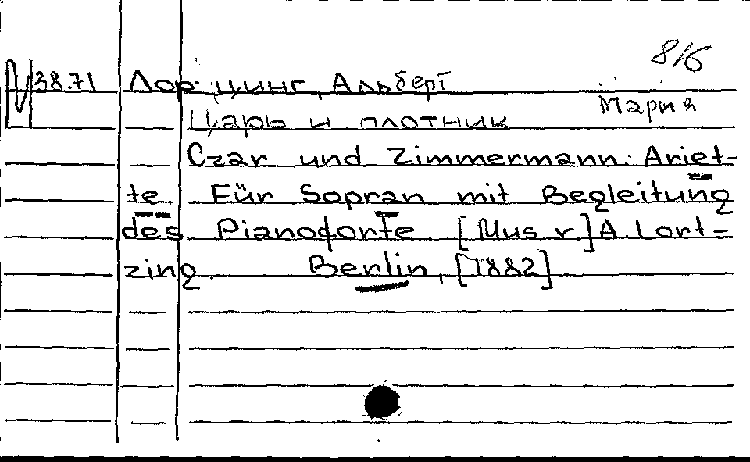 816
38.71 Лорцинг, Альберт
Мария
Царь и плотник
Czar und Zimmermann. Ariet-
te Für Sopran mit Begleitung
des Pianoforte [Mus v.] A Lort-
zing. Berlin, [1882]